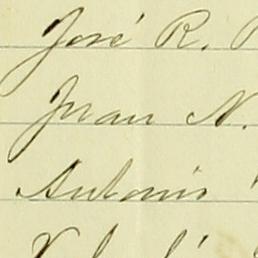 José R.
Juan N.
Antonio